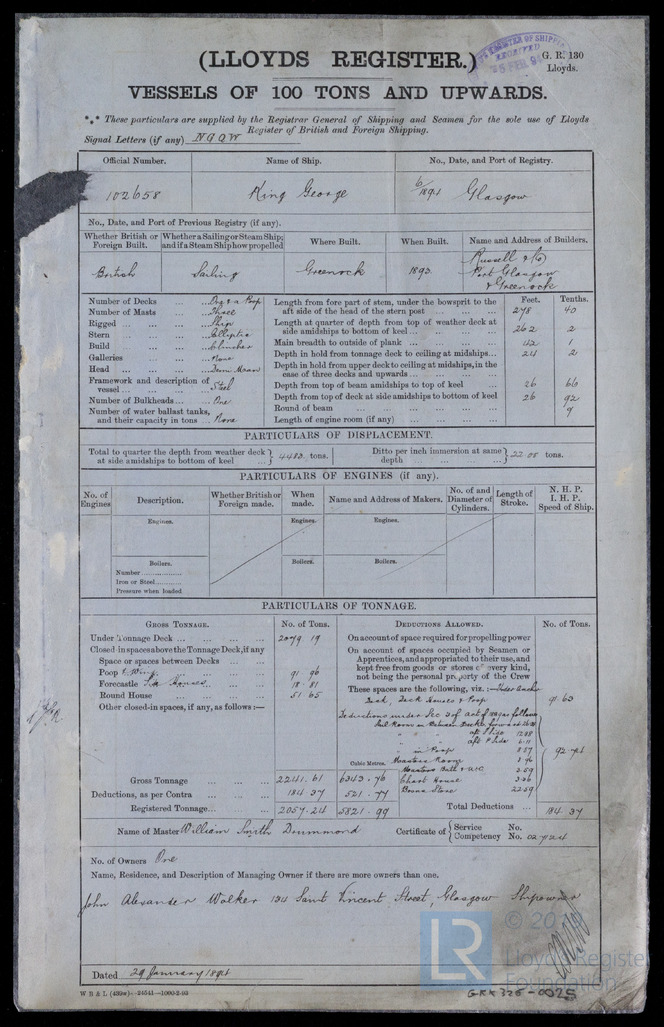 (LLOYDS REGISTER.)
G. R. 130
Lloyds.
VESSELS OF 100 TONS AND UPWARDS.
*** These particulars are supplied by the Registrar General of Shipping and Seamen for the sole use of Lloyds
Register of British and Foreign Shipping.
Signal Letters (if any) NGQW
Official Number. Name of Ship. No., Date, and Port of Registry.
102658 King George 6/1894 Glasgow
No., Date, and Port of Previous Registry (if any).
Whether British or Foreign Built. Whether a Sailing or Steam Ship; and if a Steam Ship how propelled Where Built. When Built. Name and Address of Builders.
British Sailing Greenock 1893 Russell & Co Port Glasgow & Greenock
Number of Decks
Number of Masts Three
Rigged Ship
Stern Elliptic
Build Clincher
Galleries None
Head Demi Woman
Framework and description of vessel Steel
Number of Bulkheads One
Number of water ballast tanks, and their capacity in tons None
Feet. Tenths.
Length from fore part of stem, under the bowsprit to the aft side of the head of the stern post 278 40
Length at quarter of depth from top of weather deck at side amidships to bottom of keel 262 2
Main breadth to outside of plank 42 1
Depth in hold from tonnage deck to ceiling at midships 24 2
Depth in hold from upper deck to ceiling at midships, in the case of three decks and upwards
Depth from top of beam amidships to top of keel 26 66
Depth from top of deck at side amidships to bottom of keel 26 92
Round of beam 9
Length of engine room (if any)
PARTICULARS OF DISPLACEMENT.
Total to quarter the depth from weather deck at side amidships to bottom of keel 4483 tons. Ditto per inch immersion at same depth 22.05 tons.
PARTICULARS OF ENGINES (if any).
No. of Engines Description. Whether British or Foreign made. When made. Name and Address of Makers. No. of and Diameter of Cylinders. Length of Stroke. N. H. P. I. H. P. Speed of Ship.
Engines. Engines. Engines.
Boilers. Boilers. Boilers.
Number
Iron or Steel
Pressure when loaded
PARTICULARS OF TONNAGE.
GROSS TONNAGE. No. of Tons. DEDUCTIONS ALLOWED. No. of Tons.
Under Tonnage Deck 2079 19
Closed-in spaces above the Tonnage Deck, if any
Space or spaces between Decks
Poop & Wing 91 96
Forecastle Side Houses 18 81
Round House 51 65
Other closed-in spaces, if any, as follows:—
On account of space required for propelling power
On account of spaces occupied by Seamen or Apprentices, and appropriated to their use, and kept free from goods or stores of every kind, not being the personal property of the Crew
These spaces are the following, viz.:—Under Anchor
Deck, Deck Houses & Poop 91 63
Deductions under Sec 3 of Act of 1889 as follows
in Poop 8.57
Masters Room
Masters Bath & WC 3.69
Chart House
Bosns Store 22.59
92.74
Cubic Metres.
Gross Tonnage 2241.61 6343.76
Deductions, as per Contra 184 37 521.77
Registered Tonnage 2057.24 5821.99
Total Deductions 184.37
Name of Master William Smith Drummond Certificate of Service No. Competency No.
No. of Owners One
Name, Residence, and Description of Managing Owner if there are more owners than one.
John Alexander Walker 134 Saint Vincent Street, Glasgow Shipowner
Dated 29 January 1894
W B & L (439w)—24541—1000-2-93
LR
Lloyd's Register
Foundation